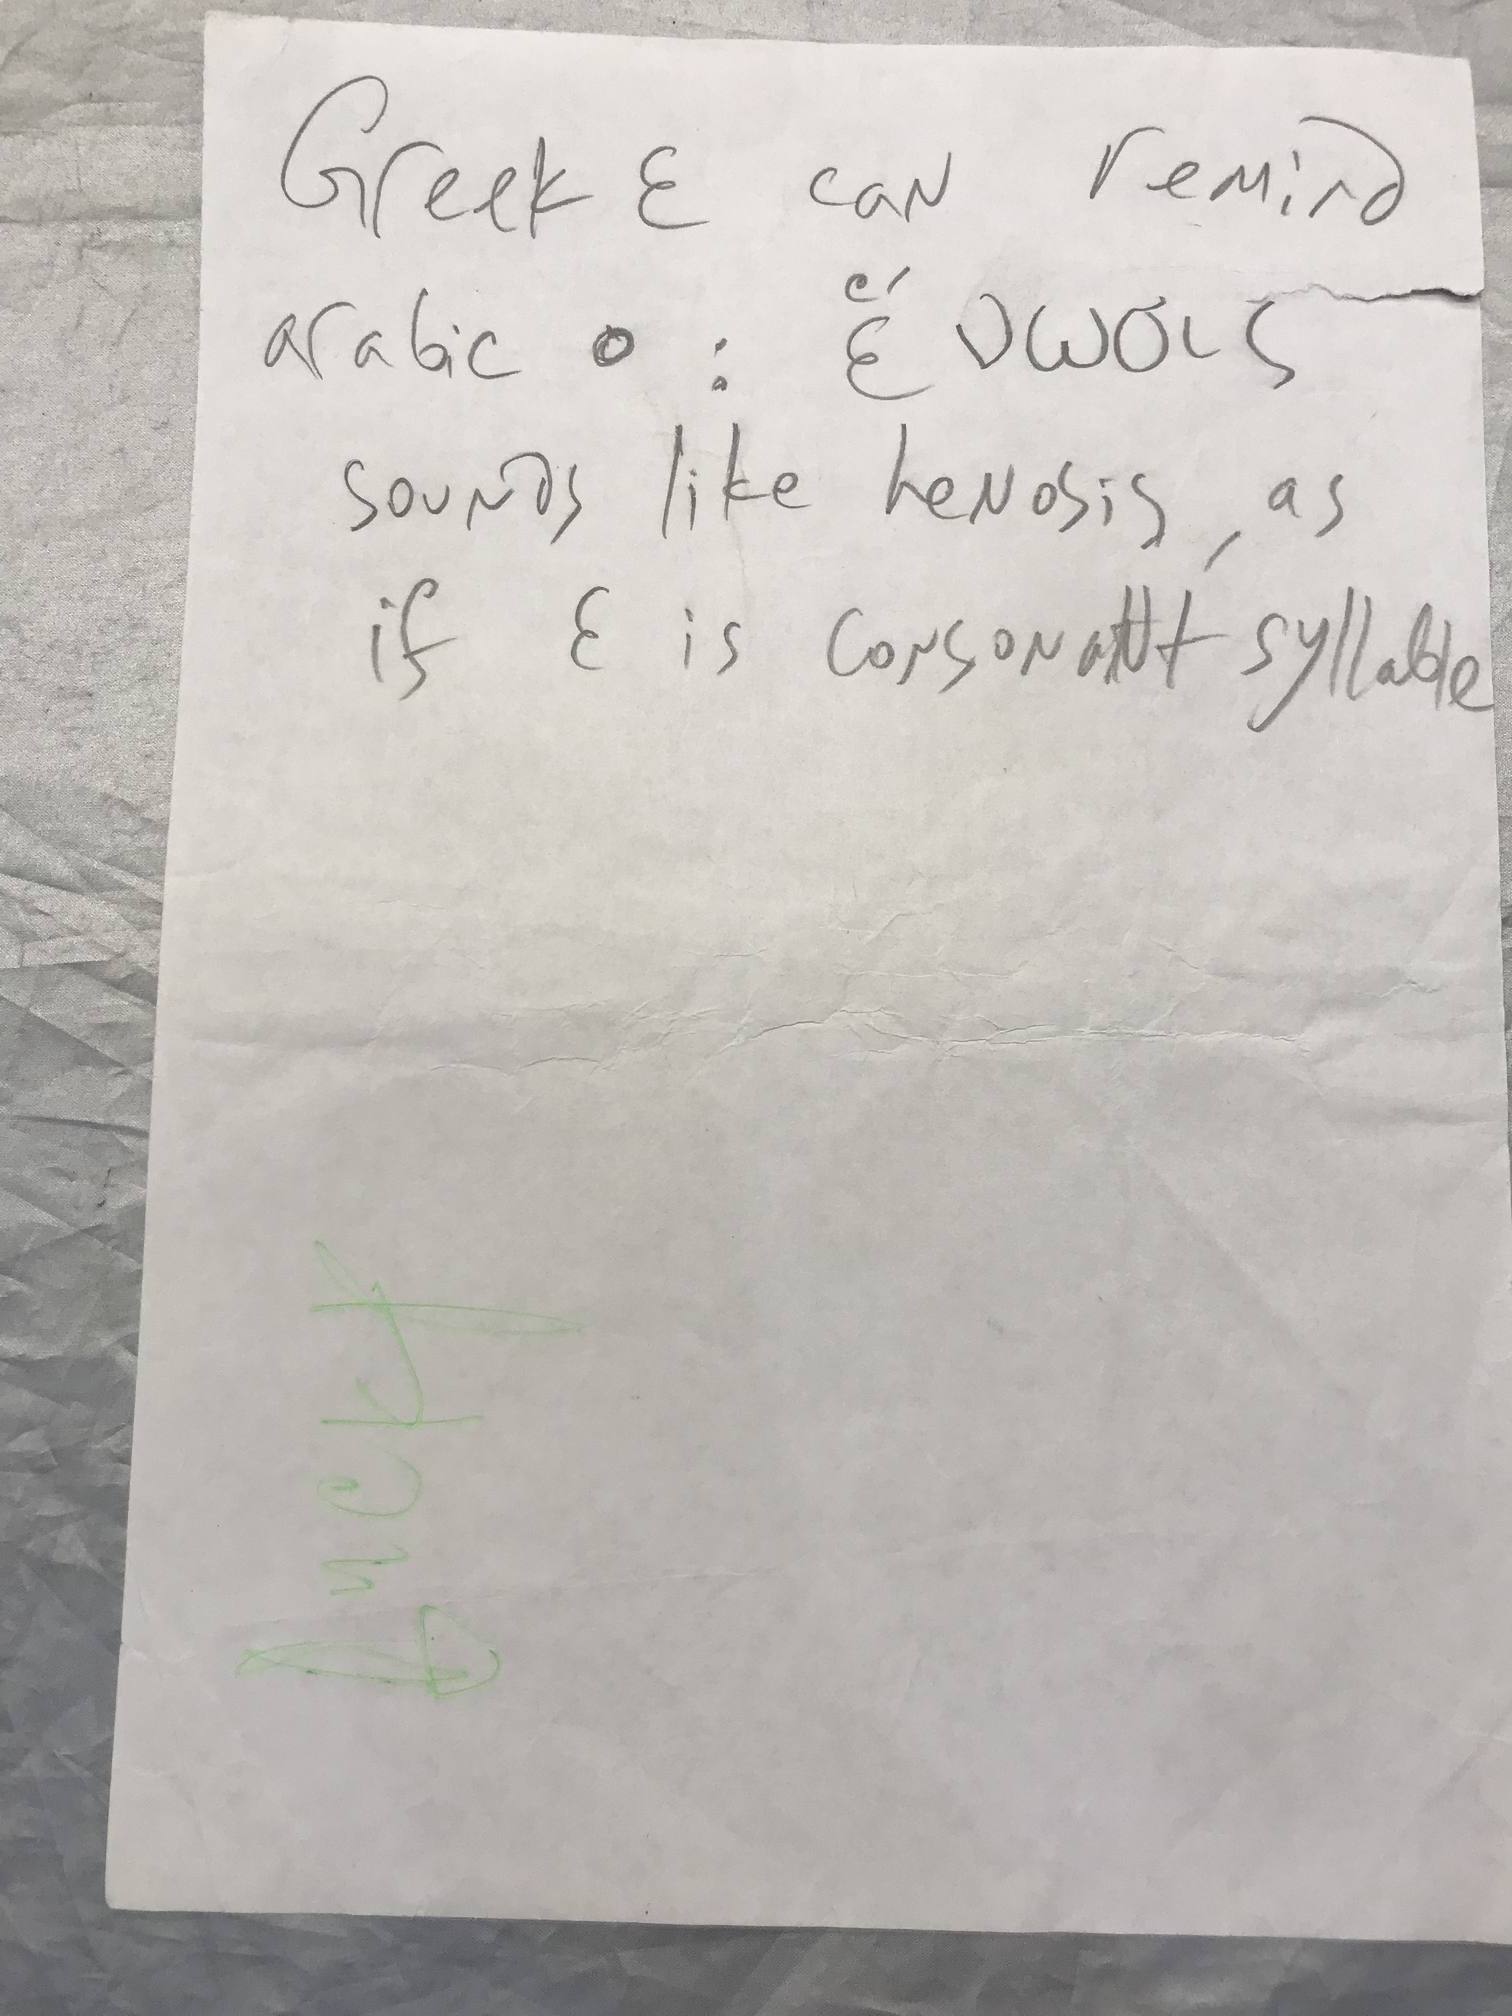 Greek ε can remind
arabic o : ἕνωσις
sounds like henosis, as
if ε is consonant syllable